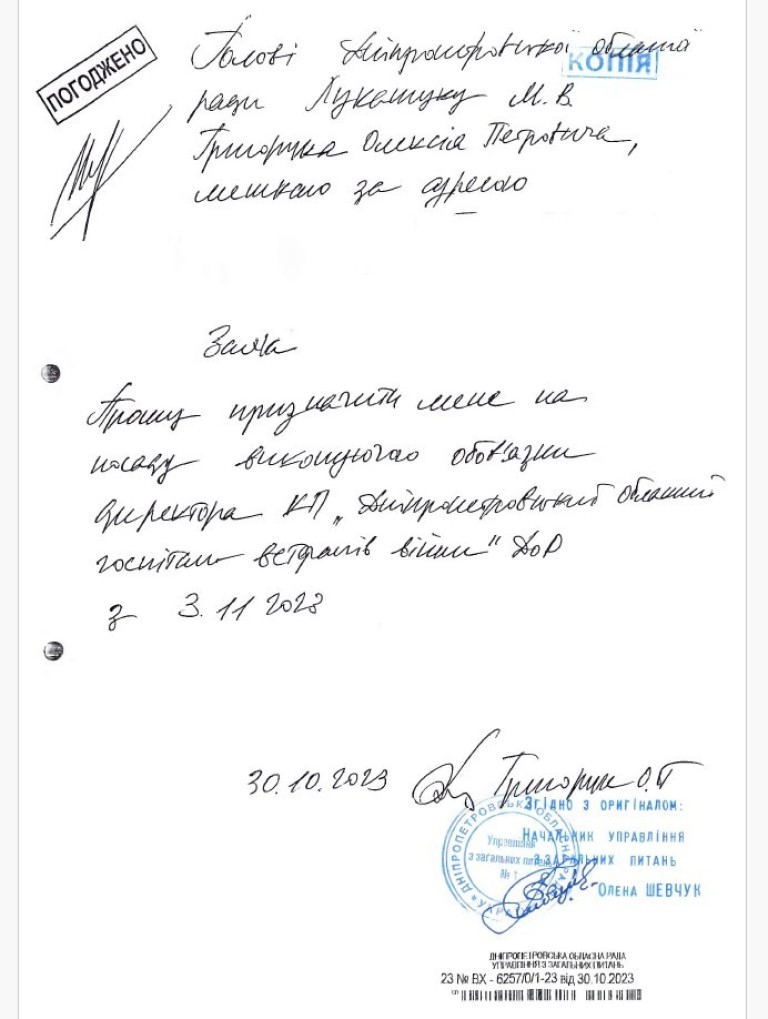 ПОГОДЖЕНО
Голові Дніпропетровської обласної
КОПІЯ
ради Лукашуку М.В.
Григорука Олексія Петровича,
мешкаю за адресою
Заява
Прошу призначити мене на
посаду виконуючого обов'язки
директора КП „Дніпропетровський обласний
госпіталь ветеранів війни" ДОР
з 3.11 2023
30.10.2023 Григорук О.П
Згідно з оригіналом:
Начальник управління
з загальних питань
Олена ШЕВЧУК
ДНІПРОПЕТРОВСЬКА ОБЛАСНА РАДА
Управління
з загальних питань
№ 1
УКРАЇНА
ДНІПРОПЕТРОВСЬКА ОБЛАСНА РАДА
УПРАВЛІННЯ З ЗАГАЛЬНИХ ПИТАНЬ
23 № ВХ - 6257/0/1-23 від 30.10.2023